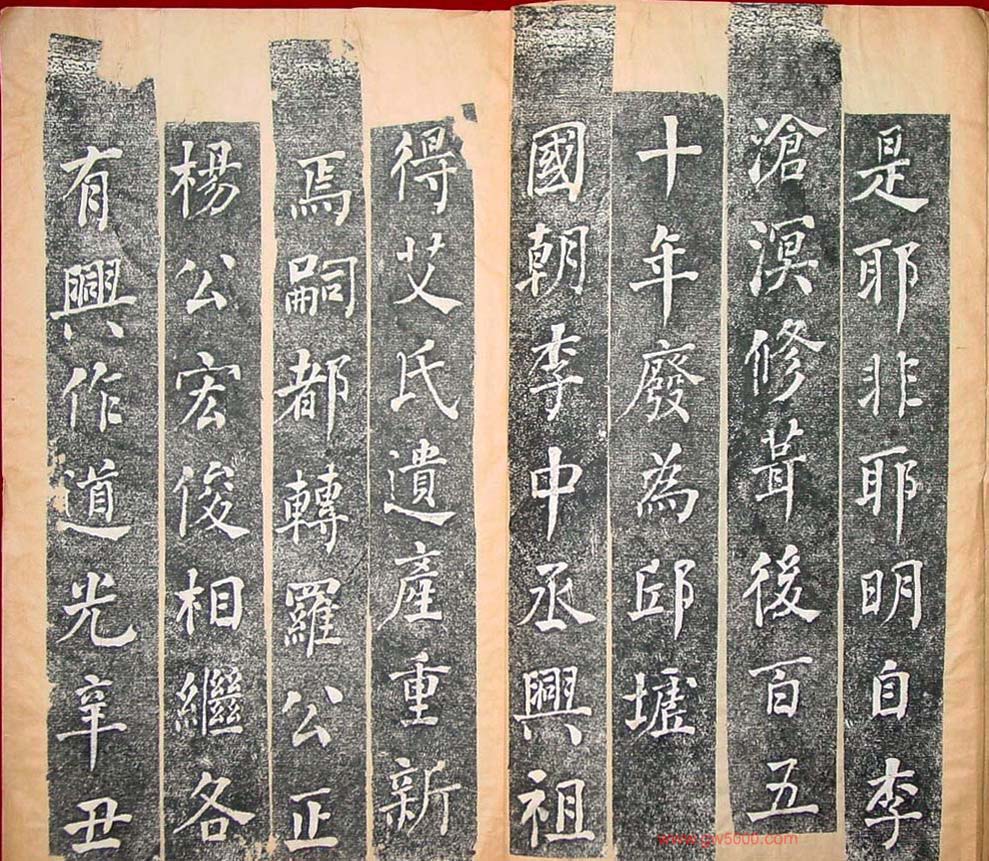 是耶非耶明自李
滄溟修葺後百五
十年廢為邱墟
國朝李中丞興祖
得艾氏遺產重新
焉嗣都轉羅公正
楊公宏俊相繼各
有興作道光辛丑
www.gw5000.com